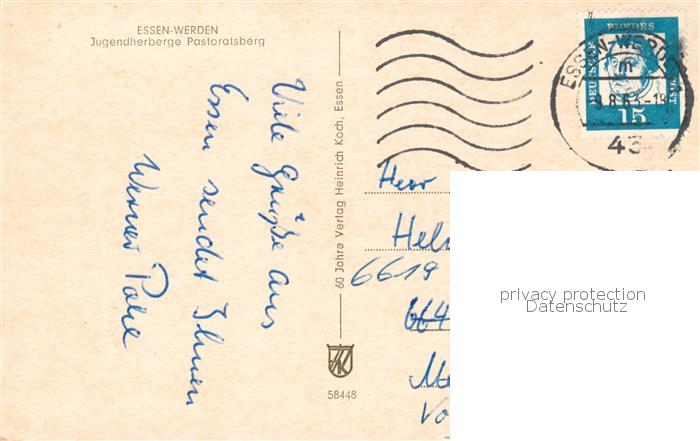 ESSEN-WERDEN
Jugendherberge Pastoratsberg
Viele Grüße aus
Essen sendet Ihnen
Werner
60 Jahre Verlag Heinrich Koch, Essen
58448
DEUTSCHE
BUNDES
POST
15
ESSEN-WERDEN
m
8.63-19
43
Herr
Hel
6619
664
privacy protection
Datenschutz